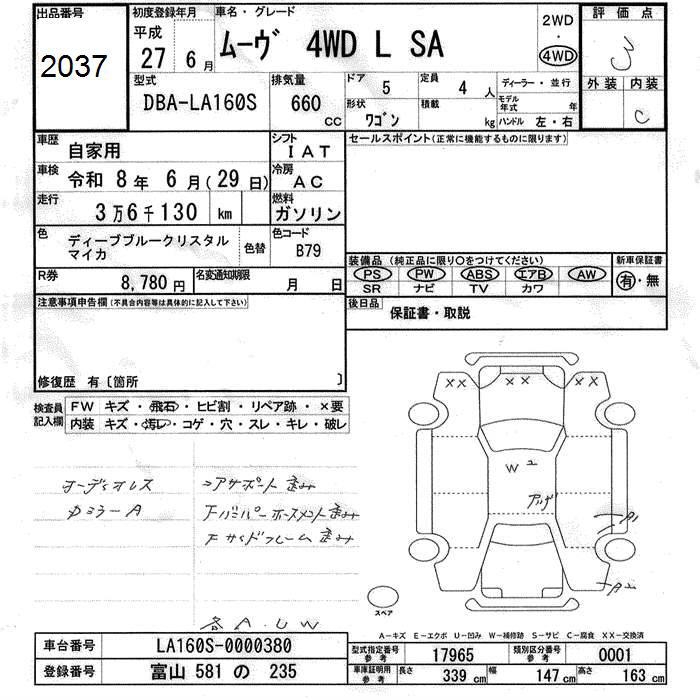 出品番号
2037
初度登録年月
平成
27 6月
車名・グレード
ムーヴ 4WD L SA
2WD
・
4WD
評価点
3
外装 内装
C
型式
DBA-LA160S
排気量
660
cc
ドア 5
定員 4人
形状
ワゴン
積載
kg
ディーラー・並行
モデル年式 年
ハンドル 左・右
車歴
自家用
シフト
IAT
車検
令和 8年 6月(29日)
冷房
AC
走行
3万6千130 km
燃料
ガソリン
色
ディープブルークリスタル
マイカ
色替
色コード
B79
R券
8,780円
名変通知期限
月 日
セールスポイント(正常に機能するものに限ります)
装備品(純正品に限り○をつけてください)
PS PW ABS エアB AW
SR ナビ TV カワ
新車保証書
有・無
後日品
保証書・取説
注意事項申告欄(不具合内容等は具体的に記入して下さい)
修復歴 有〔箇所 〕
検査員
記入欄
FW キズ・飛石・ヒビ割・リペア跡・×要
内装 キズ・汚レ・コゲ・穴・スレ・キレ・破レ
オーディオレス
カミラーA
コアサポート歪み
Fバンパーホースメント歪み
FサイドフレームE歪み
各A.U.W
XX
XX
XX
W2
アゲ
A1
A2
スペア
A-キズ E-エクボ U-凹み W-補修跡 S-サビ C-腐食 XX-交換済
車台番号
LA160S-0000380
登録番号
富山 581 の 235
型式指定番号
参考
17965
類別区分番号
参考
0001
車庫証明用
参考
長さ 339 cm
幅 147 cm
高さ 163 cm